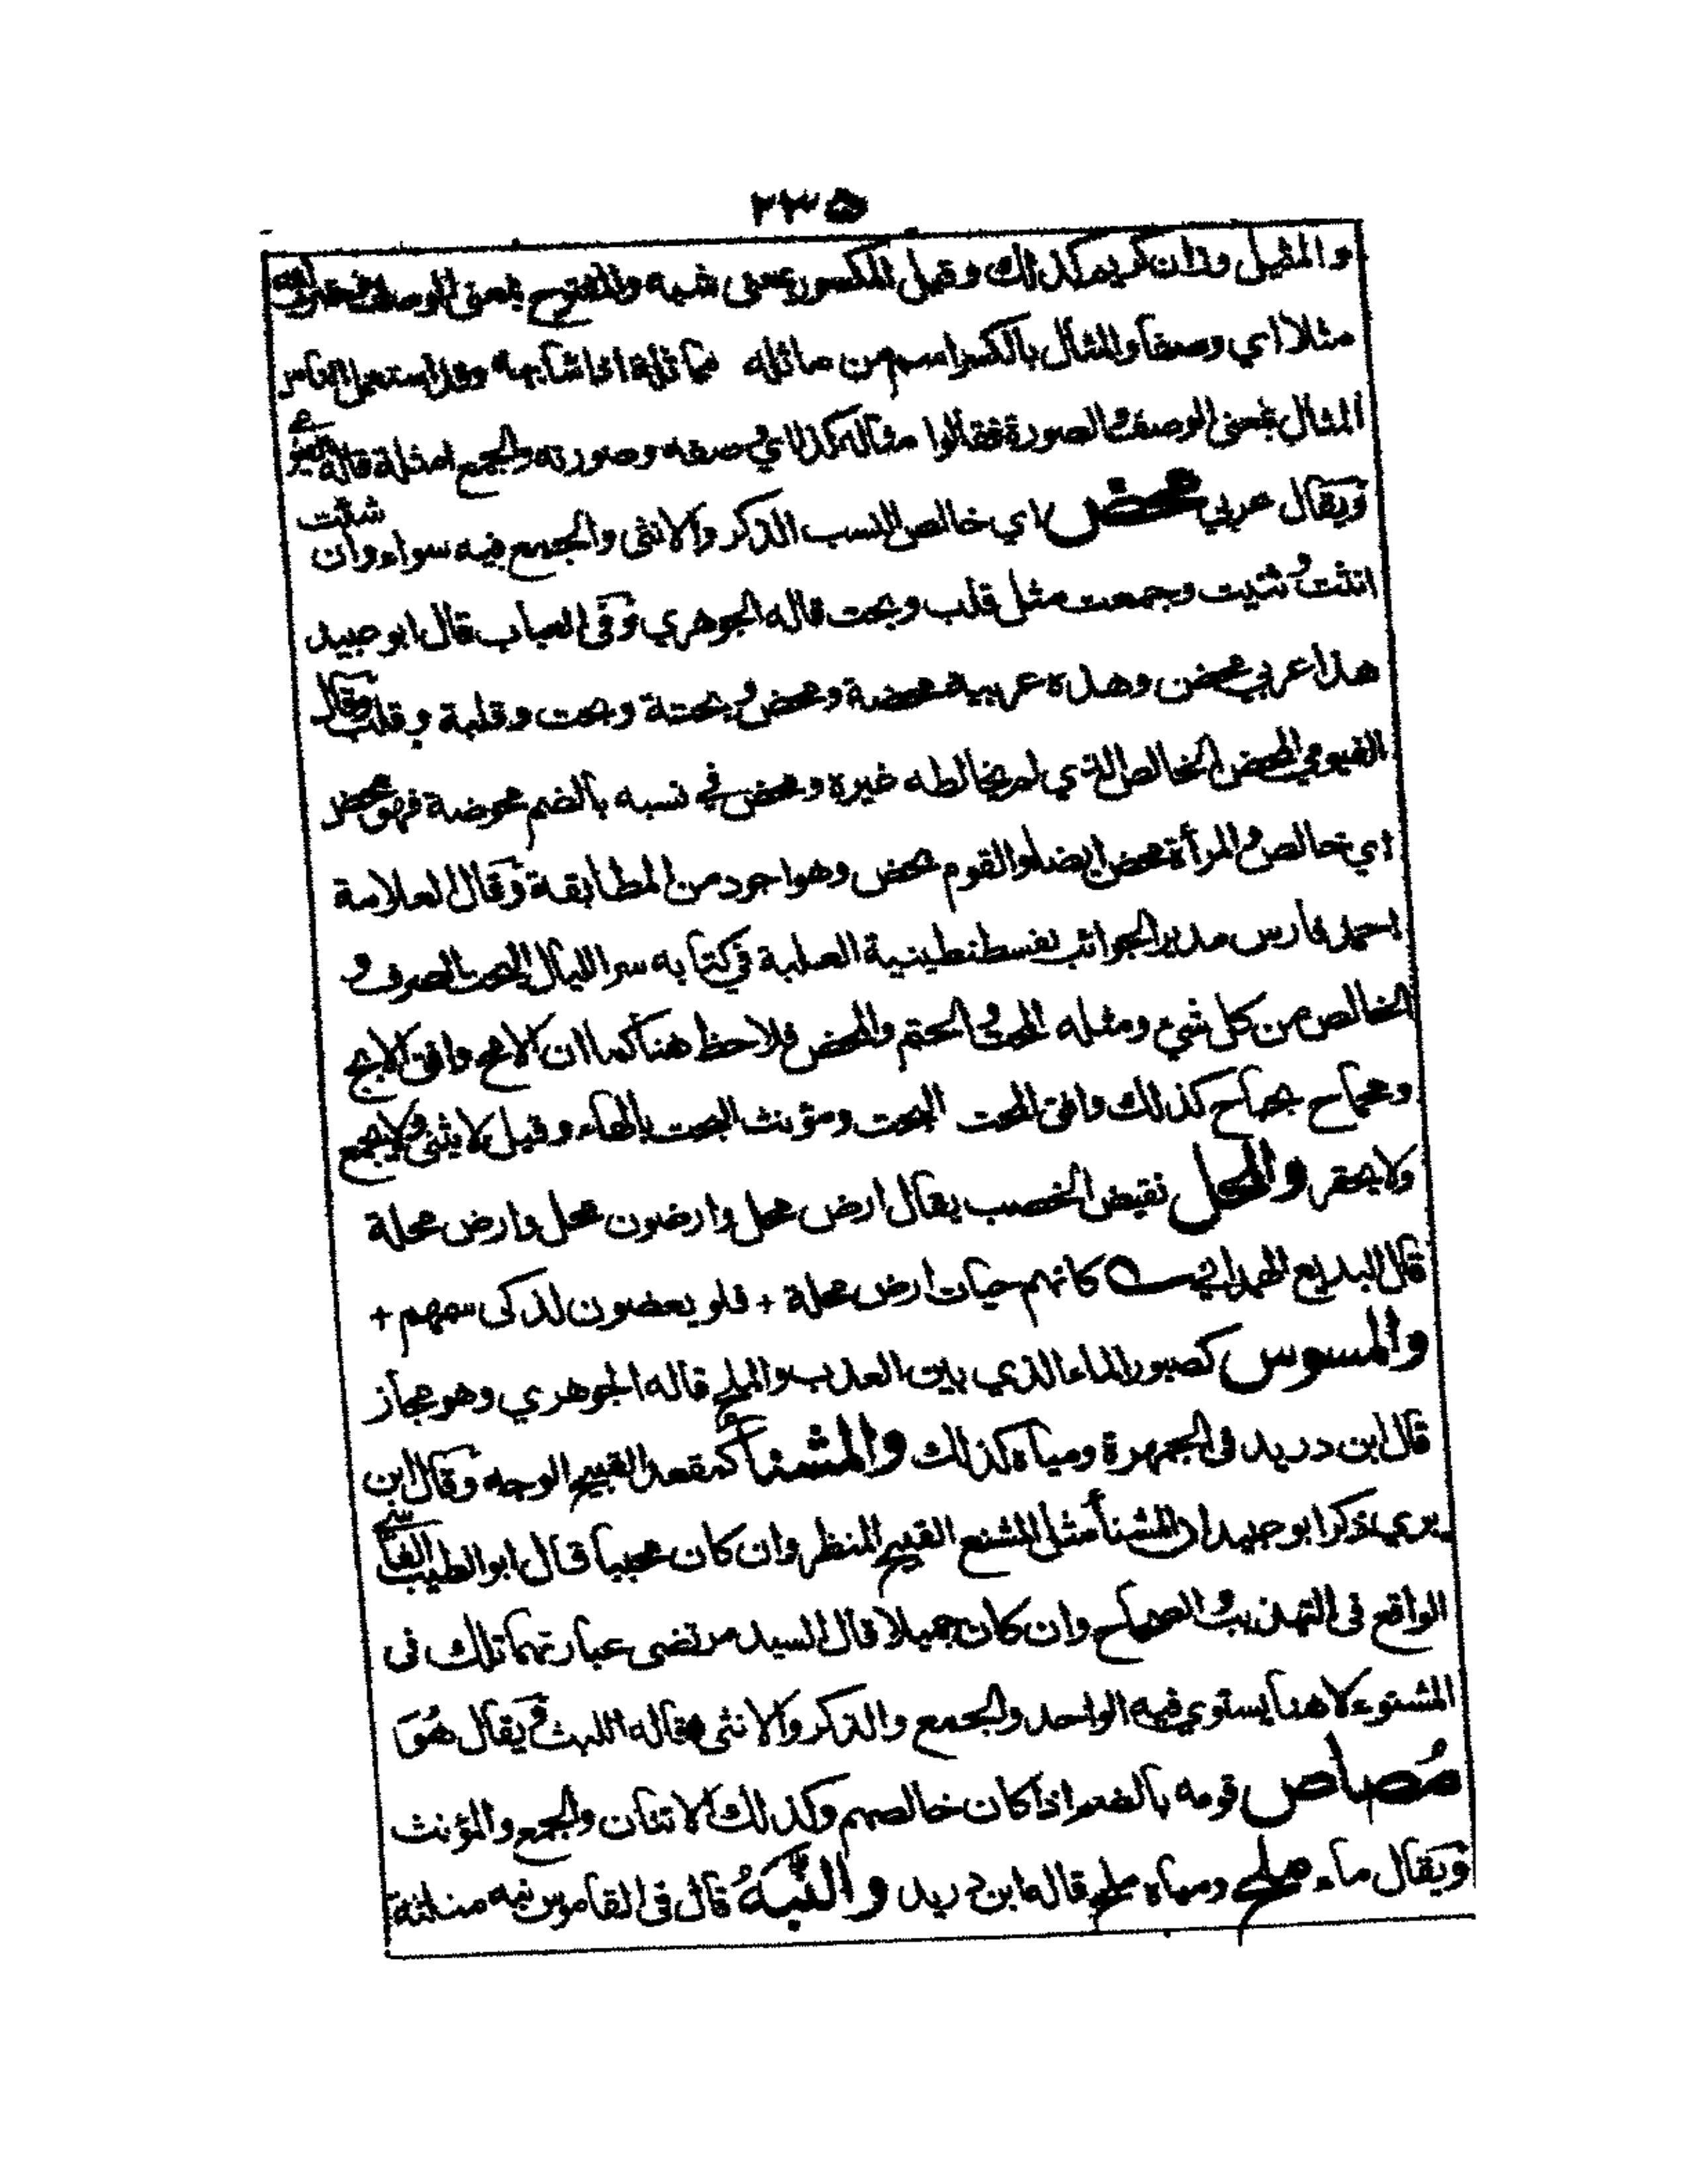 ٢٣٥
والمثيل وزان كريم كذلك وقيل المكسور بمعنى شبه والمفتوح بمعنى الوصف
مثلا اي وصفا والمثال بالكسر اسم من ماثله مماثلة اذا شابهه وقد استعمل الناس
المثال بمعنى الوصف والصورة فقالوا مثاله كذا اي صفه وصورته والجمع امثلة قاله الفيومي
ويقال عربي محض اي خالص النسب الذكر والانثى والجمع فيه سواء وان شئت
انثت وثنيت وجمعت مثل قلب وبحت قاله الجوهري وفى العباب قال ابو عبيد
هذا عربي محض وهذه عربية محضة ومحض وبحتة وبحت وقلبة وقلب وقال
الفيومي المحض الخالص الذي لم يخالطه غيره ومحض في نسبه بالضم محوضة فهو محض
اي خالص والمرأة محض ايضا والقوم محض وهو اجود من المطابقة وقال العلامة
احمد فارس مدير الجوائب بقسطنطينية العلية في كتابه سر الليال البحت الصرف و
الخالص من كل شيء ومثله المحت والحتم والمحض فلاحظ هنا كما ان الامح وافق الابح
ومحماح بحباح كذلك وافق المحت البحت ومؤنث البحت بالهاء وقيل لا يثنى ولا يجمع
ولا يحقر والمحل نقيض الخصب يقال ارض محل وارضون محل وارض محلة
قال البديع الهمداني كانهم حيات ارض محلة + فلو يعضون لذكى سمهم +
والمسوس كصبور الماء الذي بين العذب والملح قاله الجوهري وهو مجاز
قال ابن دريد فى الجمهرة ومياه كذلك والمشنأ كمقعد القبيح الوجه وقال ابن
بري ذكر ابو عبيد ان المشنأ مثل المشنع القبيح المنظر وان كان محببا قال ابو الطيب الفاسي
الواقع فى التهذيب والصحاح وان كان جميلا قال السيد مرتضى عبارتهما تلك فى
المشنوء لا هنا يستوي فيه الواحد والجمع والذكر والانثى قاله الليث ويقال هُوَ
مُصاص قومه بالضم اذا كان خالصهم وكذلك الاثنان والجمع والمؤنث
ويقال ماء ملح ومياه ملح قاله ابن دريد والنَّبَهُ قال فى القاموس نبه مثلثة